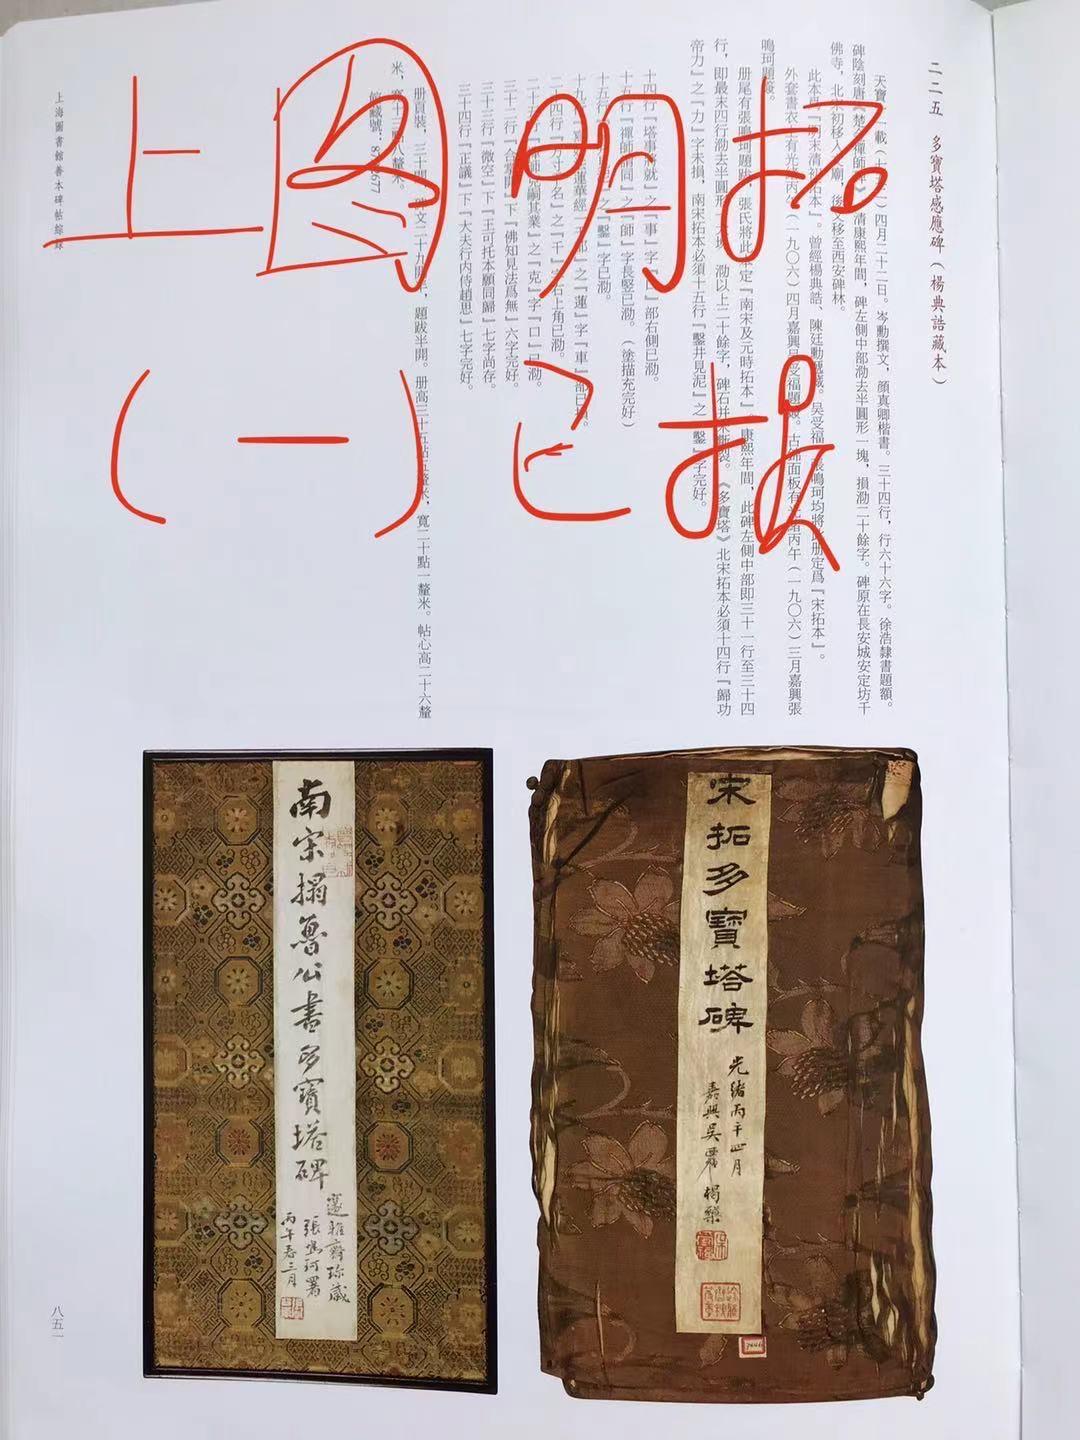 上图明拓
(一)已损
二二五　多寶塔感應碑（楊典誥藏本）
四月二十二日。岑勳撰文，顔真卿楷書。三十四行，行六十六字。徐浩隸書題額。
清康熙年間，碑左側中部泐去半圓形一塊，損泐二十餘字。碑原在長安城安定坊千
佛寺，北宋初移入
後又移至西安碑林。
此本爲『明末清初拓本』。曾經楊典誥、陳廷勳遞藏。吴受福、張鳴珂均將此册定爲『宋拓本』。
外套書衣上有光緒丙午（一九〇六）四月嘉興吴受福題簽。古錦面板有光緒丙午（一九〇六）三月嘉興張
鳴珂題簽。
册尾有張鳴珂題跋，張氏將此本定『南宋及元時拓本』。康熙年間，此碑左側中部即三十一行至三十四
行，即最末四行泐去半圓形一大塊，泐以上二十餘字，碑石并未斷裂。《多寶塔》北宋拓本必須十四行『歸功
帝力』之『力』字未損，南宋拓本必須十五行『鑿井見泥』之『鑿』字完好。
十四行『塔事
就』之『事』字
部右側已泐。
十五行『禪師
同』之『師』字長竪已泐。（塗描充完好）
十五行
之『鑿』字已泐。
十九行
蓮華經一千部』之『蓮』字『車』部已損。
二十四行『方寸千名』之『千』字右上角已泐。
二十五行『禪師克嗣其業』之『克』字『口』已泐。
三十二行『合掌開』下『佛知見法爲無』六字完好。
三十三行『微空』下『王可托本願同歸』七字尚存。
三十四行『正議』下『大夫行内侍趙思』七字完好。
册頁裝，三十
碑文二十九開半，題跋半開。册高三十五點五釐米，寬二十點一釐米。帖心高二十六釐
米，寬十三點八釐米。
館藏號：
上海圖書館善本碑帖綜録
八五一
宋拓多寶塔碑
光緒丙午四月
嘉興吴受福題簽
南宋搨魯公書多寶塔碑
邃雅齋珍藏
張鳴珂署
丙午春三月